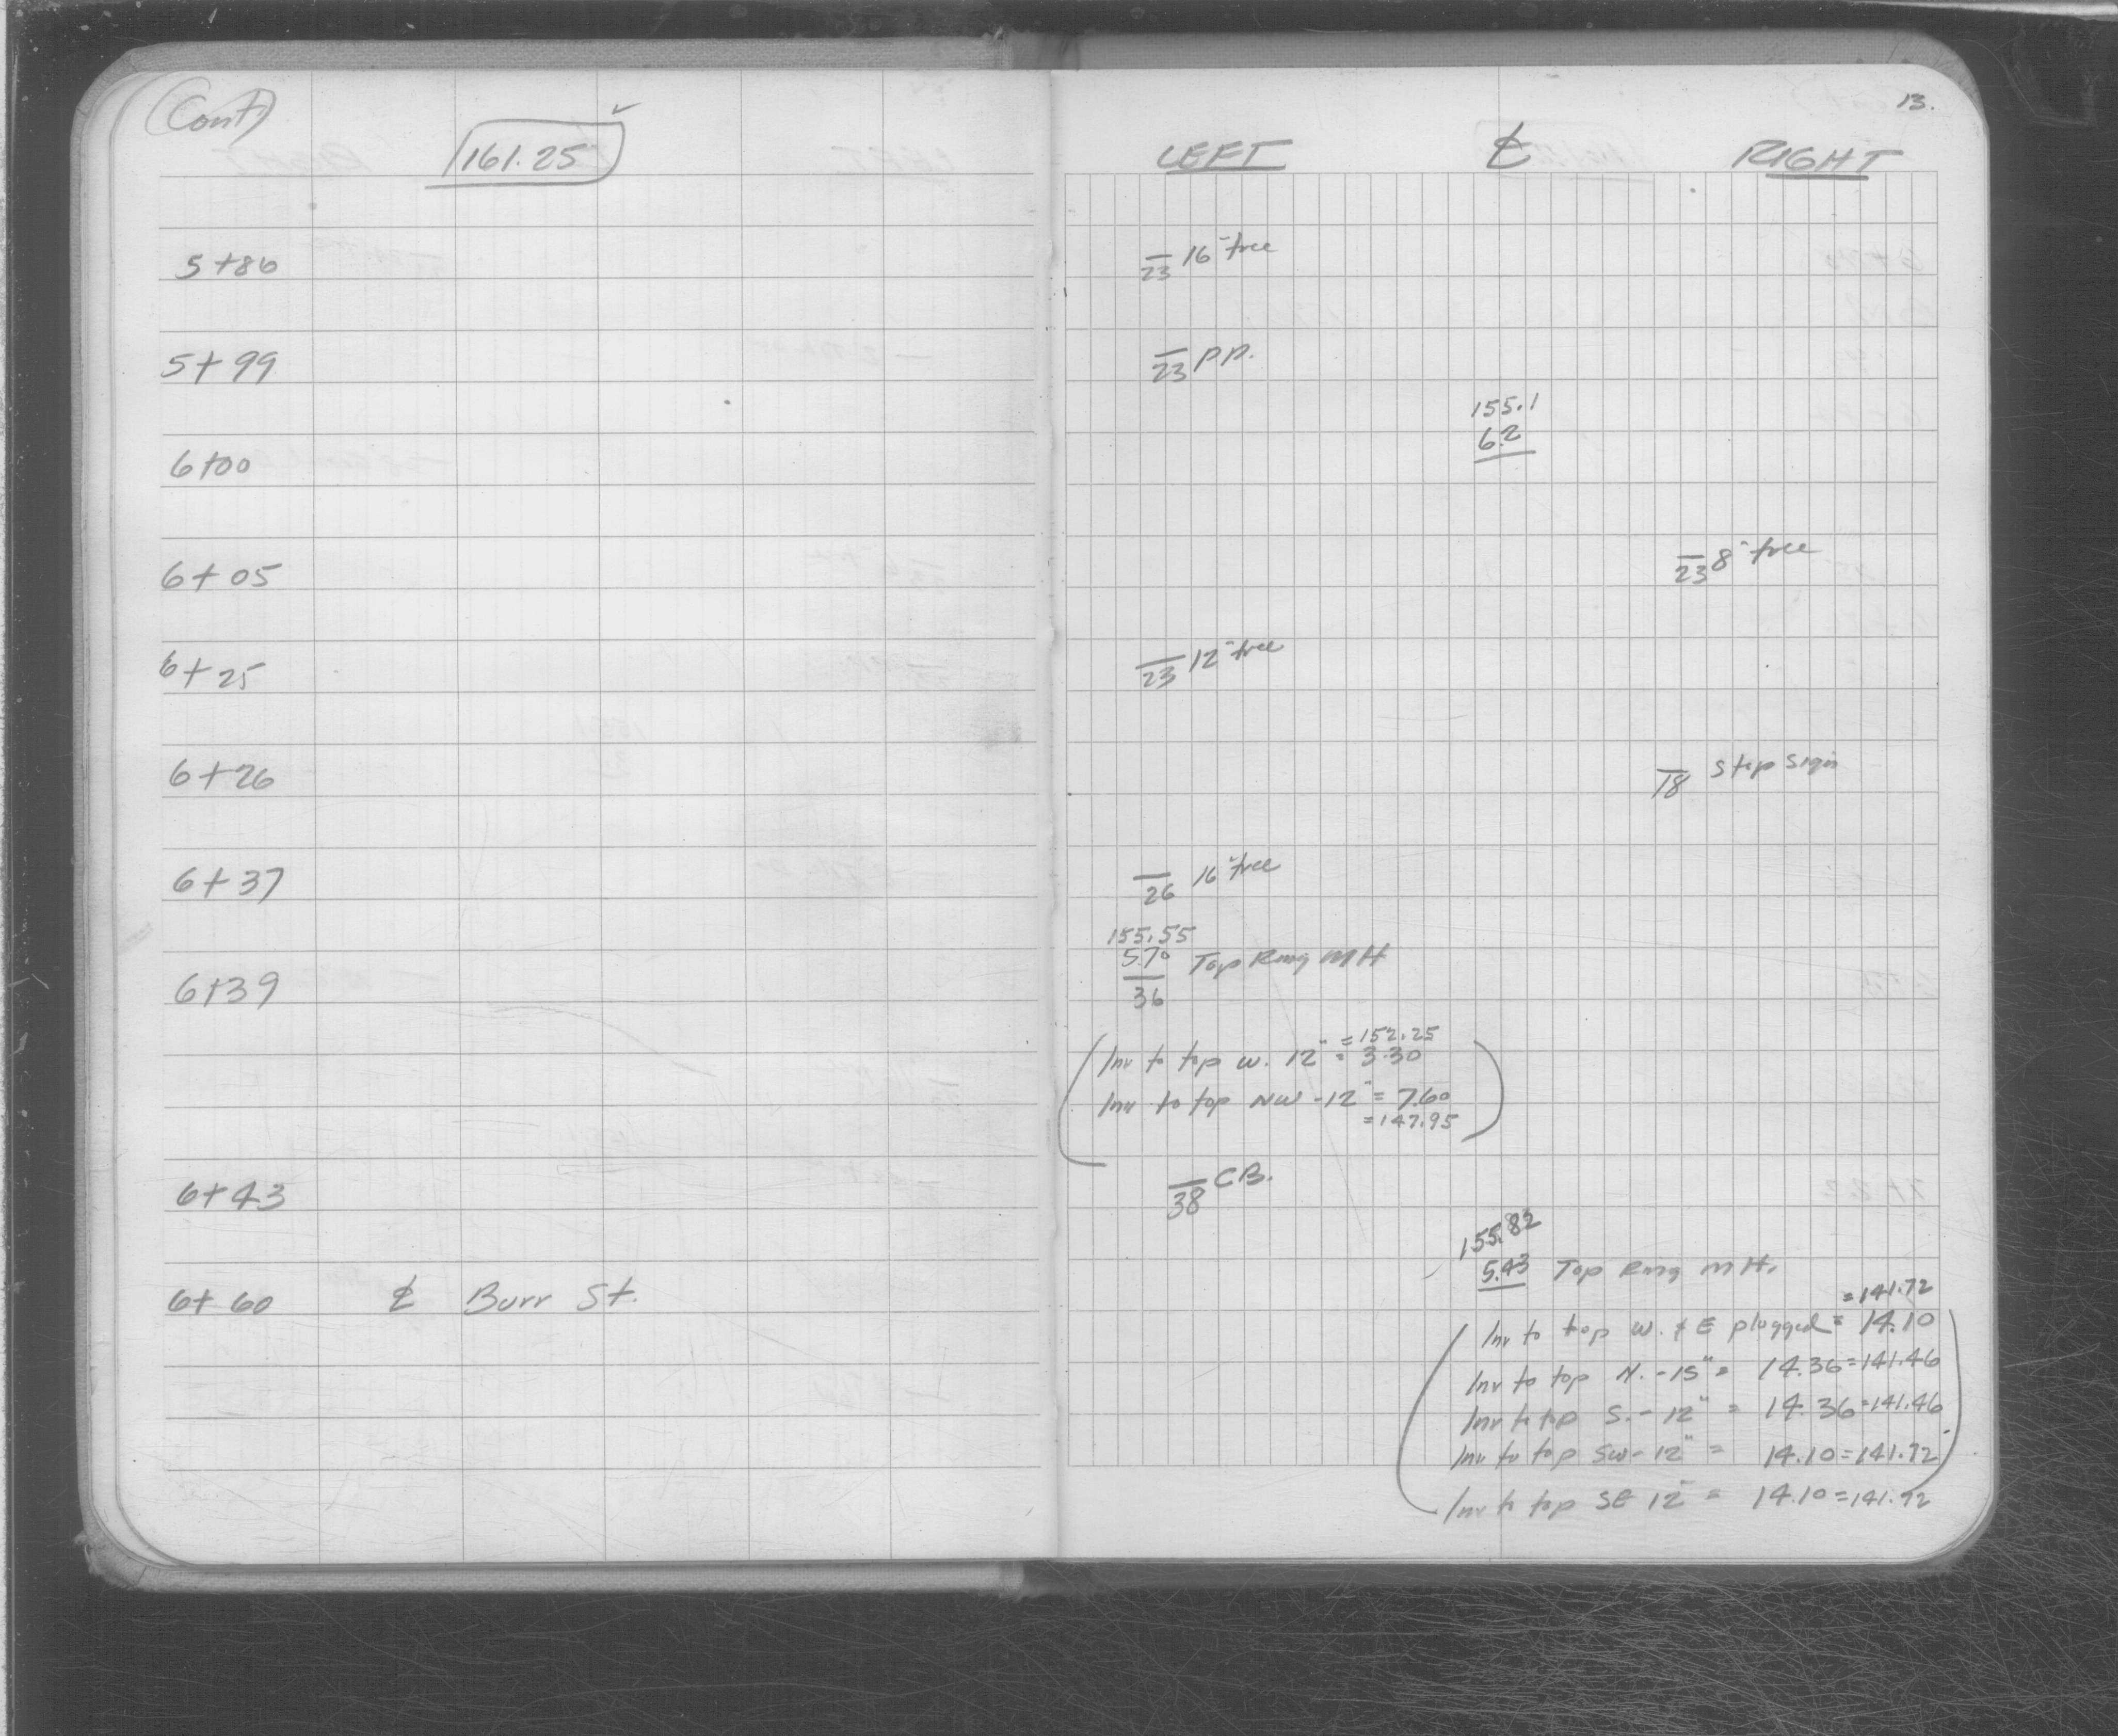 (Cont)
161.25 ✓
13.
LEFT ℄ RIGHT
5+86
23 16" tree
5+99
23 P.P.
155.1
6+00
6.2
6+05
23 8" tree
6+25
23 12" tree
6+26
18 Stop Sign
6+37
26 16" tree
155.55
5.70 Top Ring MH
6+39
36
= 152.25
Inv to top W. 12" = 3.30
Inv to top NW - 12" = 7.60
= 147.95
6+43
38 C.B.
155.82
5.43 Top Ring MH.
6+60 ℄ Burr St.
= 141.72
Inv to top W. & E plugged = 14.10
Inv to top N. - 15" = 14.36 = 141.46
Inv to top S. - 12" = 14.36 = 141.46
Inv to top SW - 12" = 14.10 = 141.72
Inv to top SE 12" = 14.10 = 141.72